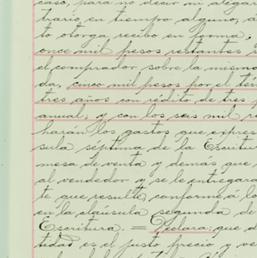 caso, para no decir ni alegar
trario en tiempo alguno, a
to otorga recibo en forma,
once mil pesos restantes
el comprador sobre la misma
da, cinco mil pesos por el tér
tres años con rédito de tres
anual; y con los seis mil
harán los gastos que expres
sula séptima de la Escritu
mesa de venta y demás que
al vendedor y se le entregará
te que resulte, conforme á lo
en la cláusula segunda de
Escritura. = Declara que
tidad es el justo precio y